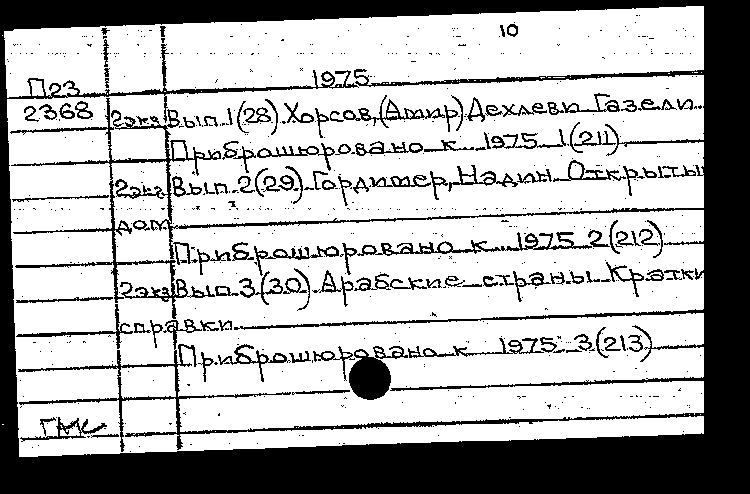 10
П23 1975
2368 2экз Вып. 1(28). Хорсов, (Амир) Дехлеви Газели
Приброшюровано к 1975 1(211)
2экз Вып. 2(29). Гордимер, Надин Открыты
дом
Приброшюровано к 1975 2(212)
2экз Вып. 3(30). Арабские страны Кратки
справки
Приброшюровано к 1975 3(213)